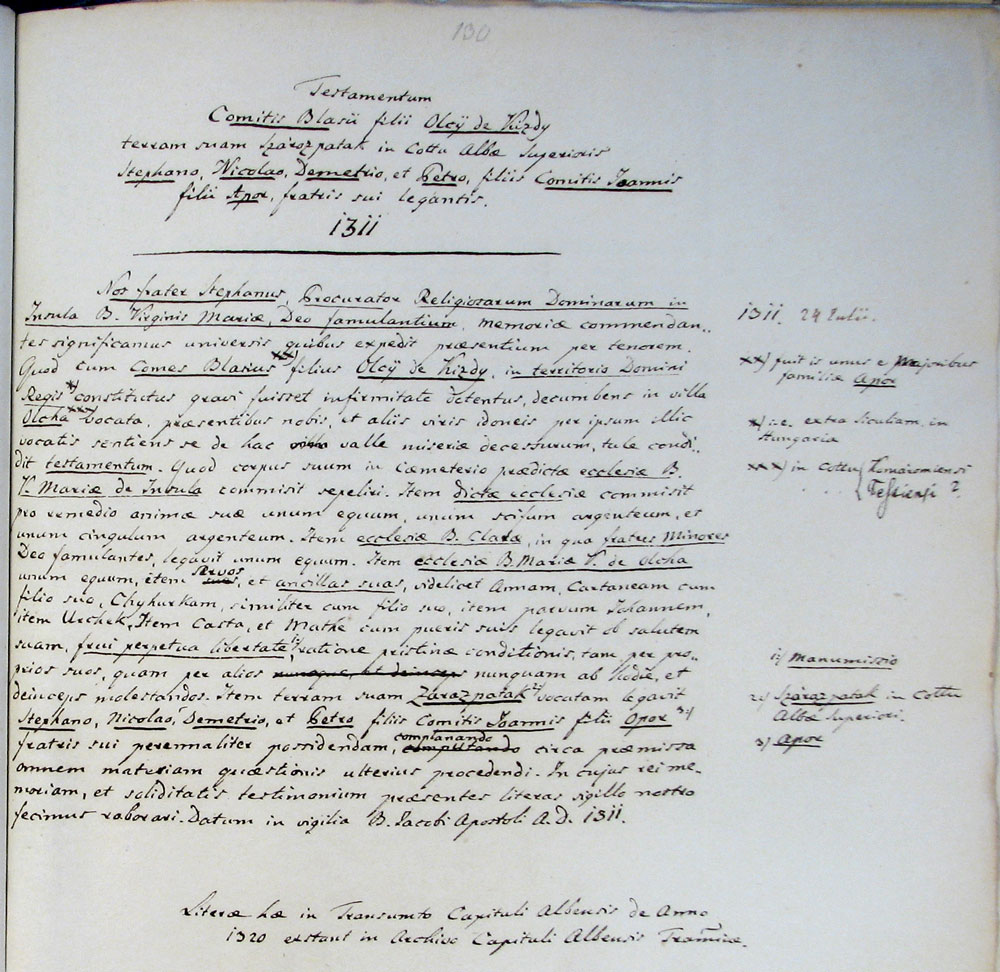 130
Testamentum
Comitis Blasii filii Olcÿ de Kizdy
terram suam Szárazpatak in Cottu Albæ Superioris
Stephano, Nicolao, Demetrio, et Petro, filiis Comitis Ioannis
filii Apor, fratris sui legantis.
1311
Nos frater Stephanus, Procurator Religiosarum Dominarum in
Insula B. Virginis Mariæ, Deo famulantium, memoriæ commendan„
tes significamus universis quibus expedit præsentium per tenorem.
Quod cum Comes Blasius xx) filius Olcÿ de Kizdy, in territorio Domini
Regis x) constitutus gravi fuisset infirmitate detentus, decumbens in villa
Olcha xxx) vocata, præsentibus nobis, et aliis viris idoneis per ipsum illic
vocatis sentiens se de hac valle miseriæ decessurum, tale condi„
dit testamentum. Quod corpus suum in Cæmeterio prædictæ ecclesiæ B.
V. Mariæ de Insula commisit sepeliri. Item dictæ ecclesiæ commisit
pro remedio animæ suæ unum equum, unum scifum argenteum, et
unum cingulum argenteum. Item ecclesiæ B. Claræ, in qua fratres Minores
Deo famulantes, legavit unum equum. Item ecclesiæ B. Mariæ V. de Olcha
unum equum, item servos, et ancillas suas, videlicet Annam, Cartaneam cum
filio suo, Chyhurkam, similiter cum filio suo, item parvum Iohannem,
item Urchek, Item Casta, et Mathe cum pueris suis legavit ob salutem
suam, frui perpetua libertate, 1) ratione pristinæ conditionis, tam per pro„
prios suos, quam per alios nunquam, et deinceps nunquam ab hodie, et
deinceps molestandos. Item terram suam Zarazpatak 2) vocatam legavit
Stephano, Nicolao, Demetrio, et Petro filiis Comitis Ioannis filii Opor 3)
fratris sui perennaliter possidendam, computando complanando circa præmissa
omnem materiam quæstionis ulterius procedendi. In cujus rei me„
moriam, et soliditatis testimonium præsentes literas sigillo nostro
fecimus roborari. Datum in vigilia B. Jacobi Apostoli A. D. 1311.
1311. 24 Iulii.
xx) fuit is unus e Majoribus
familiæ Apor
x) i.e. extra Siculiam, in
Hungaria
xxx) in Cottu Komaromiensi
Pestiensi ?
1) Manumissio
2) Szárazpatak in Cottu
Albæ Superiori.
3) Apor
Literæ hæ in Transumto Capituli Albensis de Anno
1320 extant in Archivo Capituli Albensis Tranniæ.